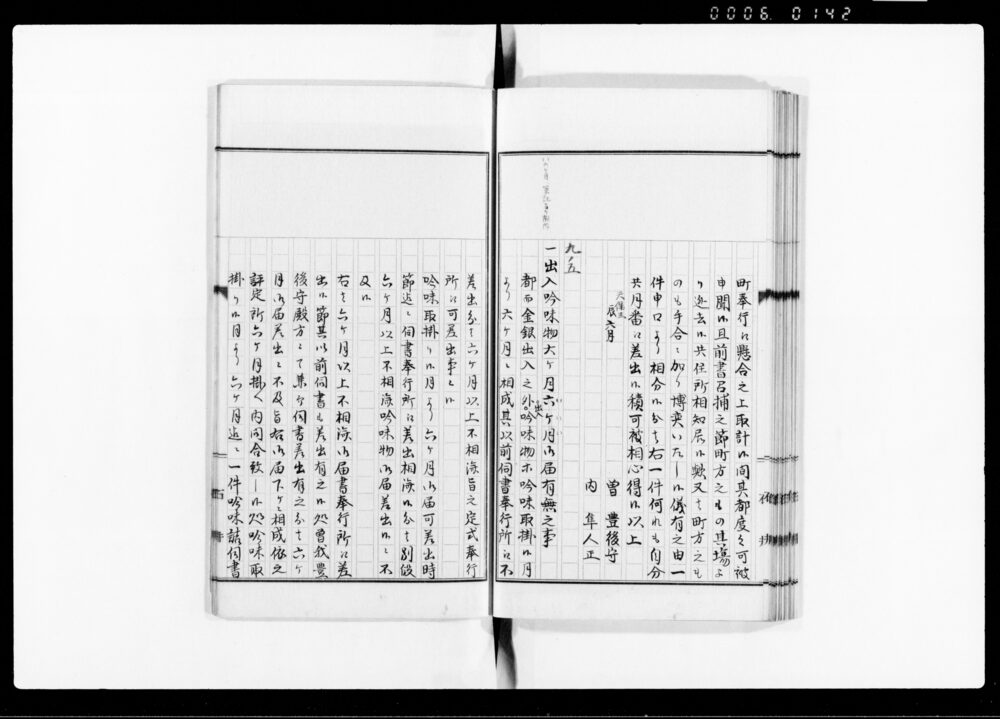 0006. 0142
町奉行に懸合之上取計候間其都度々可被
申聞候且前書召捕之節町方之もの其場よ
り逃去候共住所相知居候歟又は町方之も
のも手合に加り博奕いたし候儀有之由一
件申口より相分候分は右一件何れも自分
共月番に差出候積可被相心得候以上
天保三
辰六月
曽豊後守
内隼人正
九ノ五
一出入吟味物六ケ月六ケ月御届有無之事
都而金銀出入之外出入吟味物ホ吟味取掛候月
より六ケ月に相成其以前伺書奉行所に不
差出分は六ケ月以上不相済旨之定式奉行
所に可差出事に候
吟味取掛り候月より六ケ月御届可差出時
節迄に伺書奉行所に差出相済候分は別段
六ケ月以上不相済吟味物御届差出候に不
及候
右は六ケ月以上不相済御届書奉行所に差
出候節其以前伺書も差出有之候処曽我豊
後守殿方にて集り伺書差出有之分は六ケ
月御届差出に不及旨右御届下ケに相成依之
評定所六ケ月掛へ内問合致し候処吟味取
掛り候月より六ケ月迄に一件吟味詰伺書